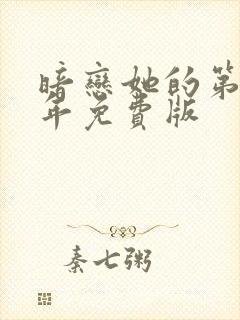 暗戀她的第
年免費版
秦七粥